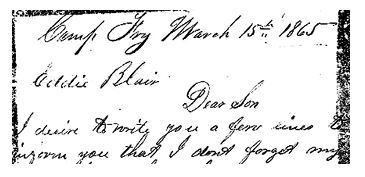 Camp Fry March 15th 1865
Eddie Blair
Dear Son
I desire to write you a few lines to
inform you that I dont forget my